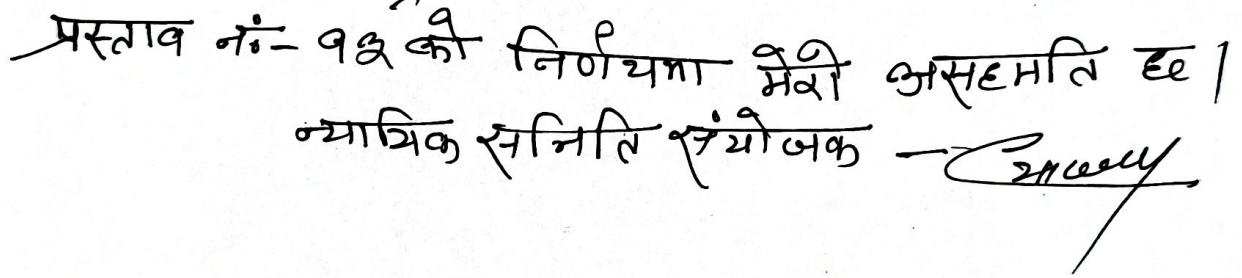 प्रस्ताव नं- १३ को निर्णयमा मेरो असहमति छ।
न्यायिक समिति संयोजक -